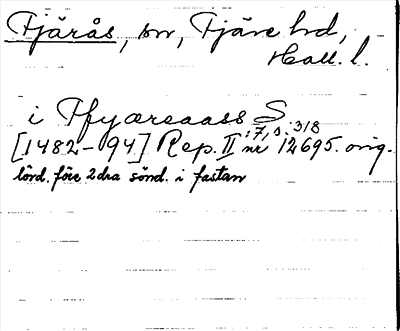 Fjärås, sn, Fjäre hd,
Hall. l.
i Ffyæraass S.
[1482-94] Rep. II :7, s. 318 nr 12695. orig.
lörd. före 2dra sönd. i fastan